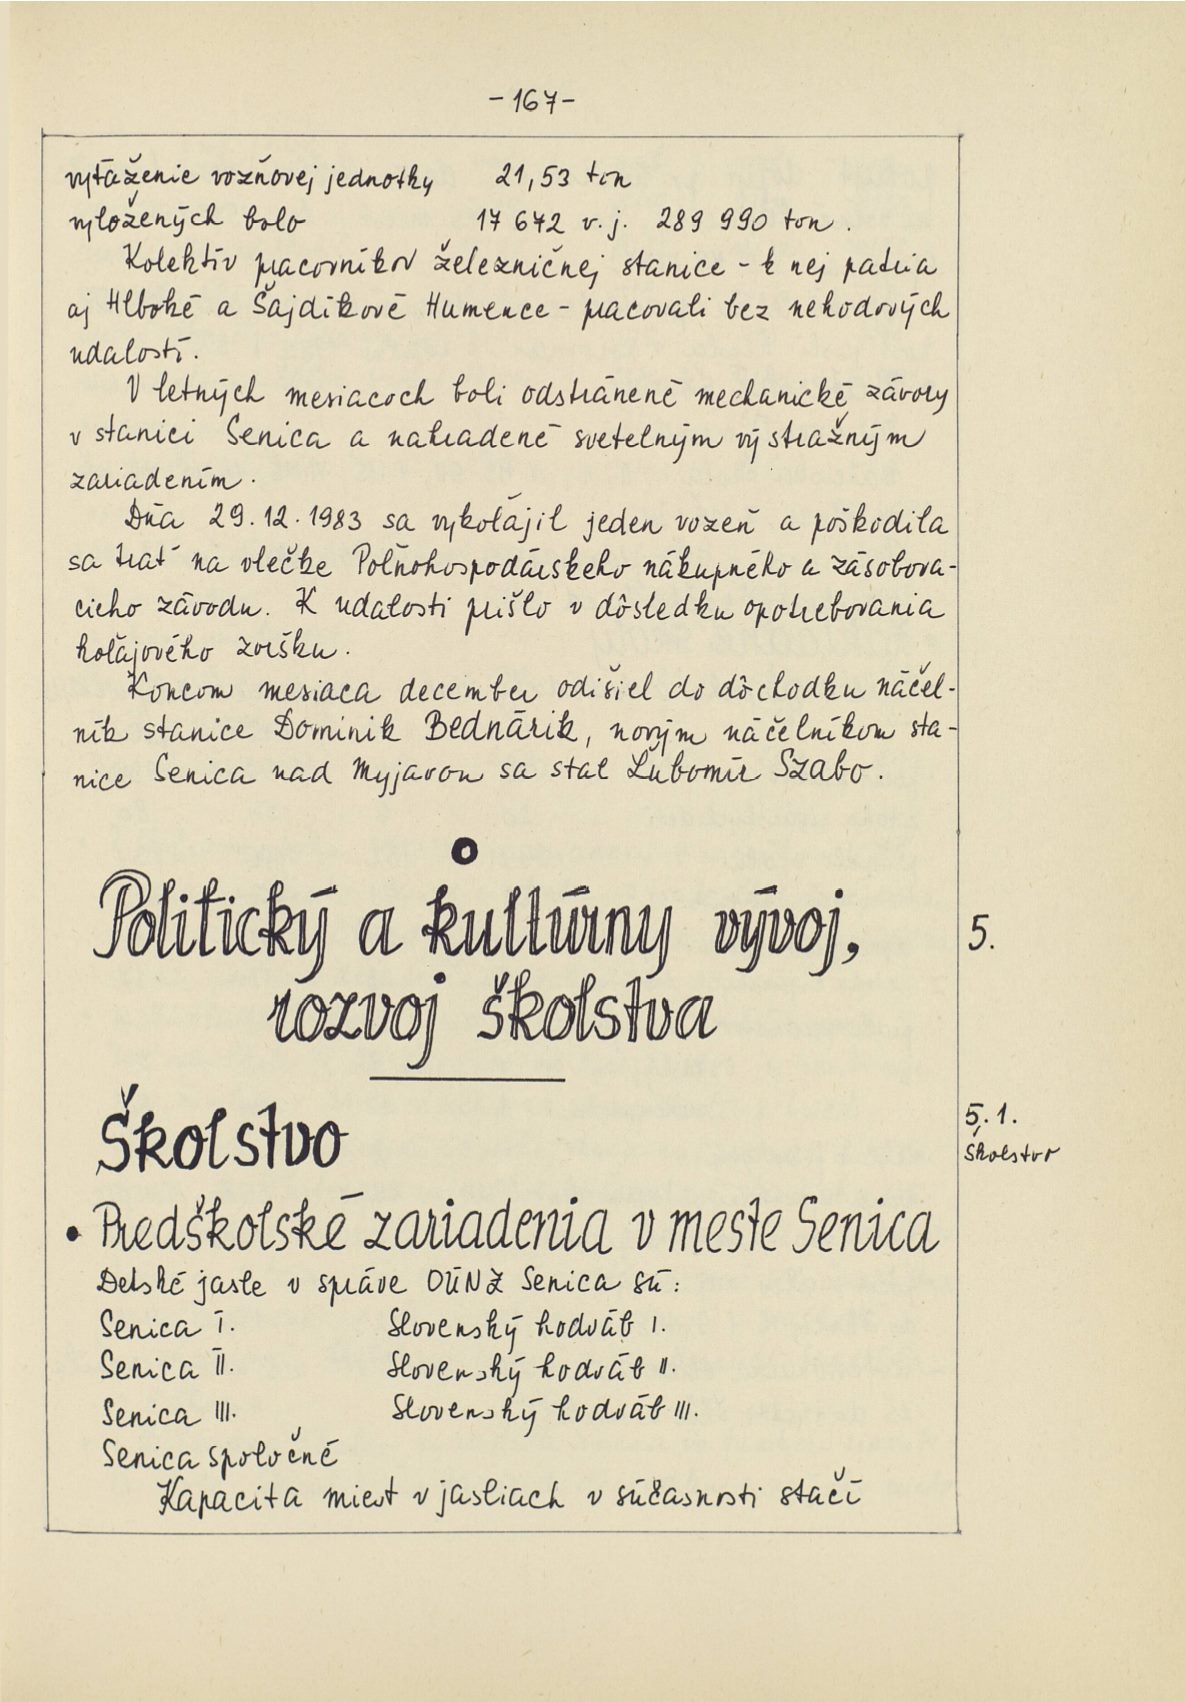 -167-
vyťaženie vozňovej jednotky 21,53 ton
vyložených bolo 17 672 v.j. 289 990 ton.
Kolektív pracovníkov železničnej stanice - k nej patria
aj Hlboké a Šajdíkové Humence - pracovali bez nehodových
udalostí.
V letných mesiacoch boli odstránené mechanické závory
v stanici Senica a nahradené svetelným výstražným
zariadením.
Dňa 29.12.1983 sa vykoľajil jeden vozeň a poškodila
sa trať na vlečke Poľnohospodárskeho nákupného a zásobova-
cieho závodu. K udalosti prišlo v dôsledku opotrebovania
koľajového zvršku.
Koncom mesiaca december odišiel do dôchodku náčel-
ník stanice Dominik Bednárik, novým náčelníkom sta-
nice Senica nad Myjavou sa stal Ľubomír Szabo.
Politický a kultúrny vývoj,
5.
rozvoj školstva
Školstvo
5.1.
Školstvo
• Predškolské zariadenia v meste Senica
Detské jasle v správe OÚNZ Senica sú:
Senica I. Slovenský hodváb I.
Senica II. Slovenský hodváb II.
Senica III. Slovenský hodváb III.
Senica spoločné
Kapacita miest v jasliach v súčasnosti stačí